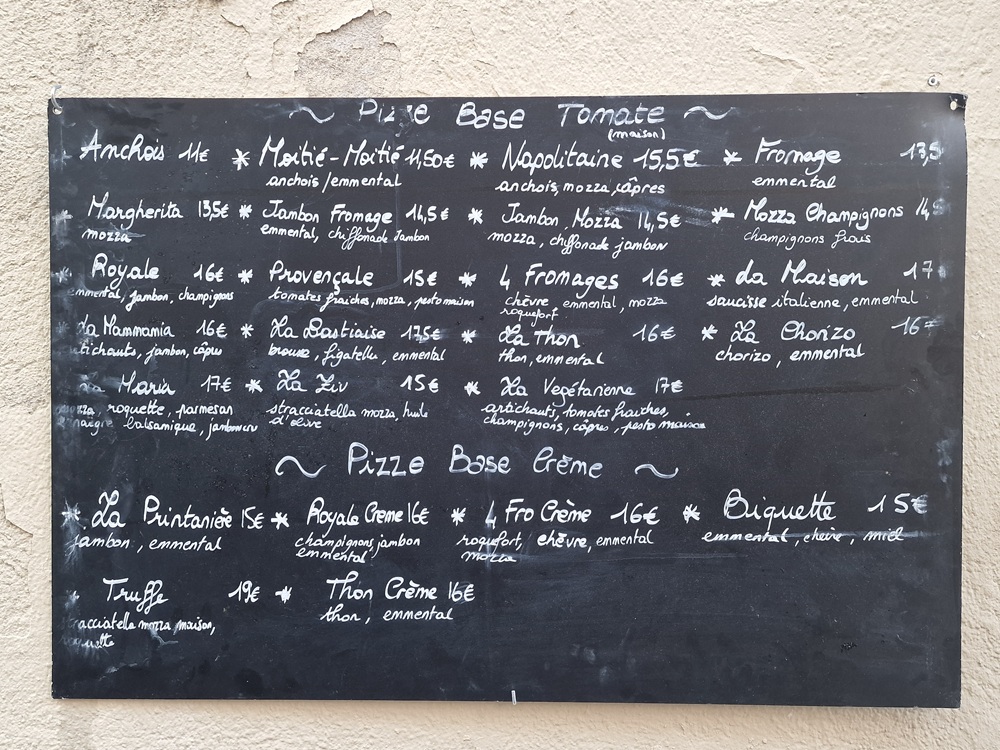 ~ Pizze Base Tomate ~
(maison)
Anchois 11€ * Moitié-Moitié 11,50€ * Napolitaine 15,5€ * Fromage 13,5
anchois/emmental anchois, mozza, câpres emmental
* Margherita 13,5€ * Jambon Fromage 14,5€ * Jambon, Mozza 14,5€ * Mozza Champignons 14,5
mozza emmental, chiffonade jambon mozza, chiffonade jambon champignons frais
* Royale 16€ * Provençale 15€ * 4 Fromages 16€ * La Maison 17
emmental, jambon, champignons tomates fraiches, mozza, pesto maison chèvre, emmental, mozza saucisse italienne, emmental
roquefort
* La Mammamia 16€ * La Bastiaise 17,5€ * La Thon 16€ * La Chorizo 16
artichauts, jambon, câpres brousse, figatellu, emmental thon, emmental chorizo, emmental
La Maria 17€ * La Ziv 15€ * La Vegétarienne 17€
mozza, roquette, parmesan stracciatella mozza, huile artichauts, tomates fraiches,
vinaigre balsamique, jambon cru d'olive champignons, câpres, pesto maison
~ Pizze Base Crème ~
* La Printanière 15€ * Royale Creme 16€ * 4 Fro Crème 16€ * Biquette 15€
jambon, emmental champignons, jambon roquefort, chèvre, emmental emmental, chèvre, miel
emmental mozza
Truffe 19€ * Thon Crème 16€
stracciatella mozza maison, thon, emmental
roquette